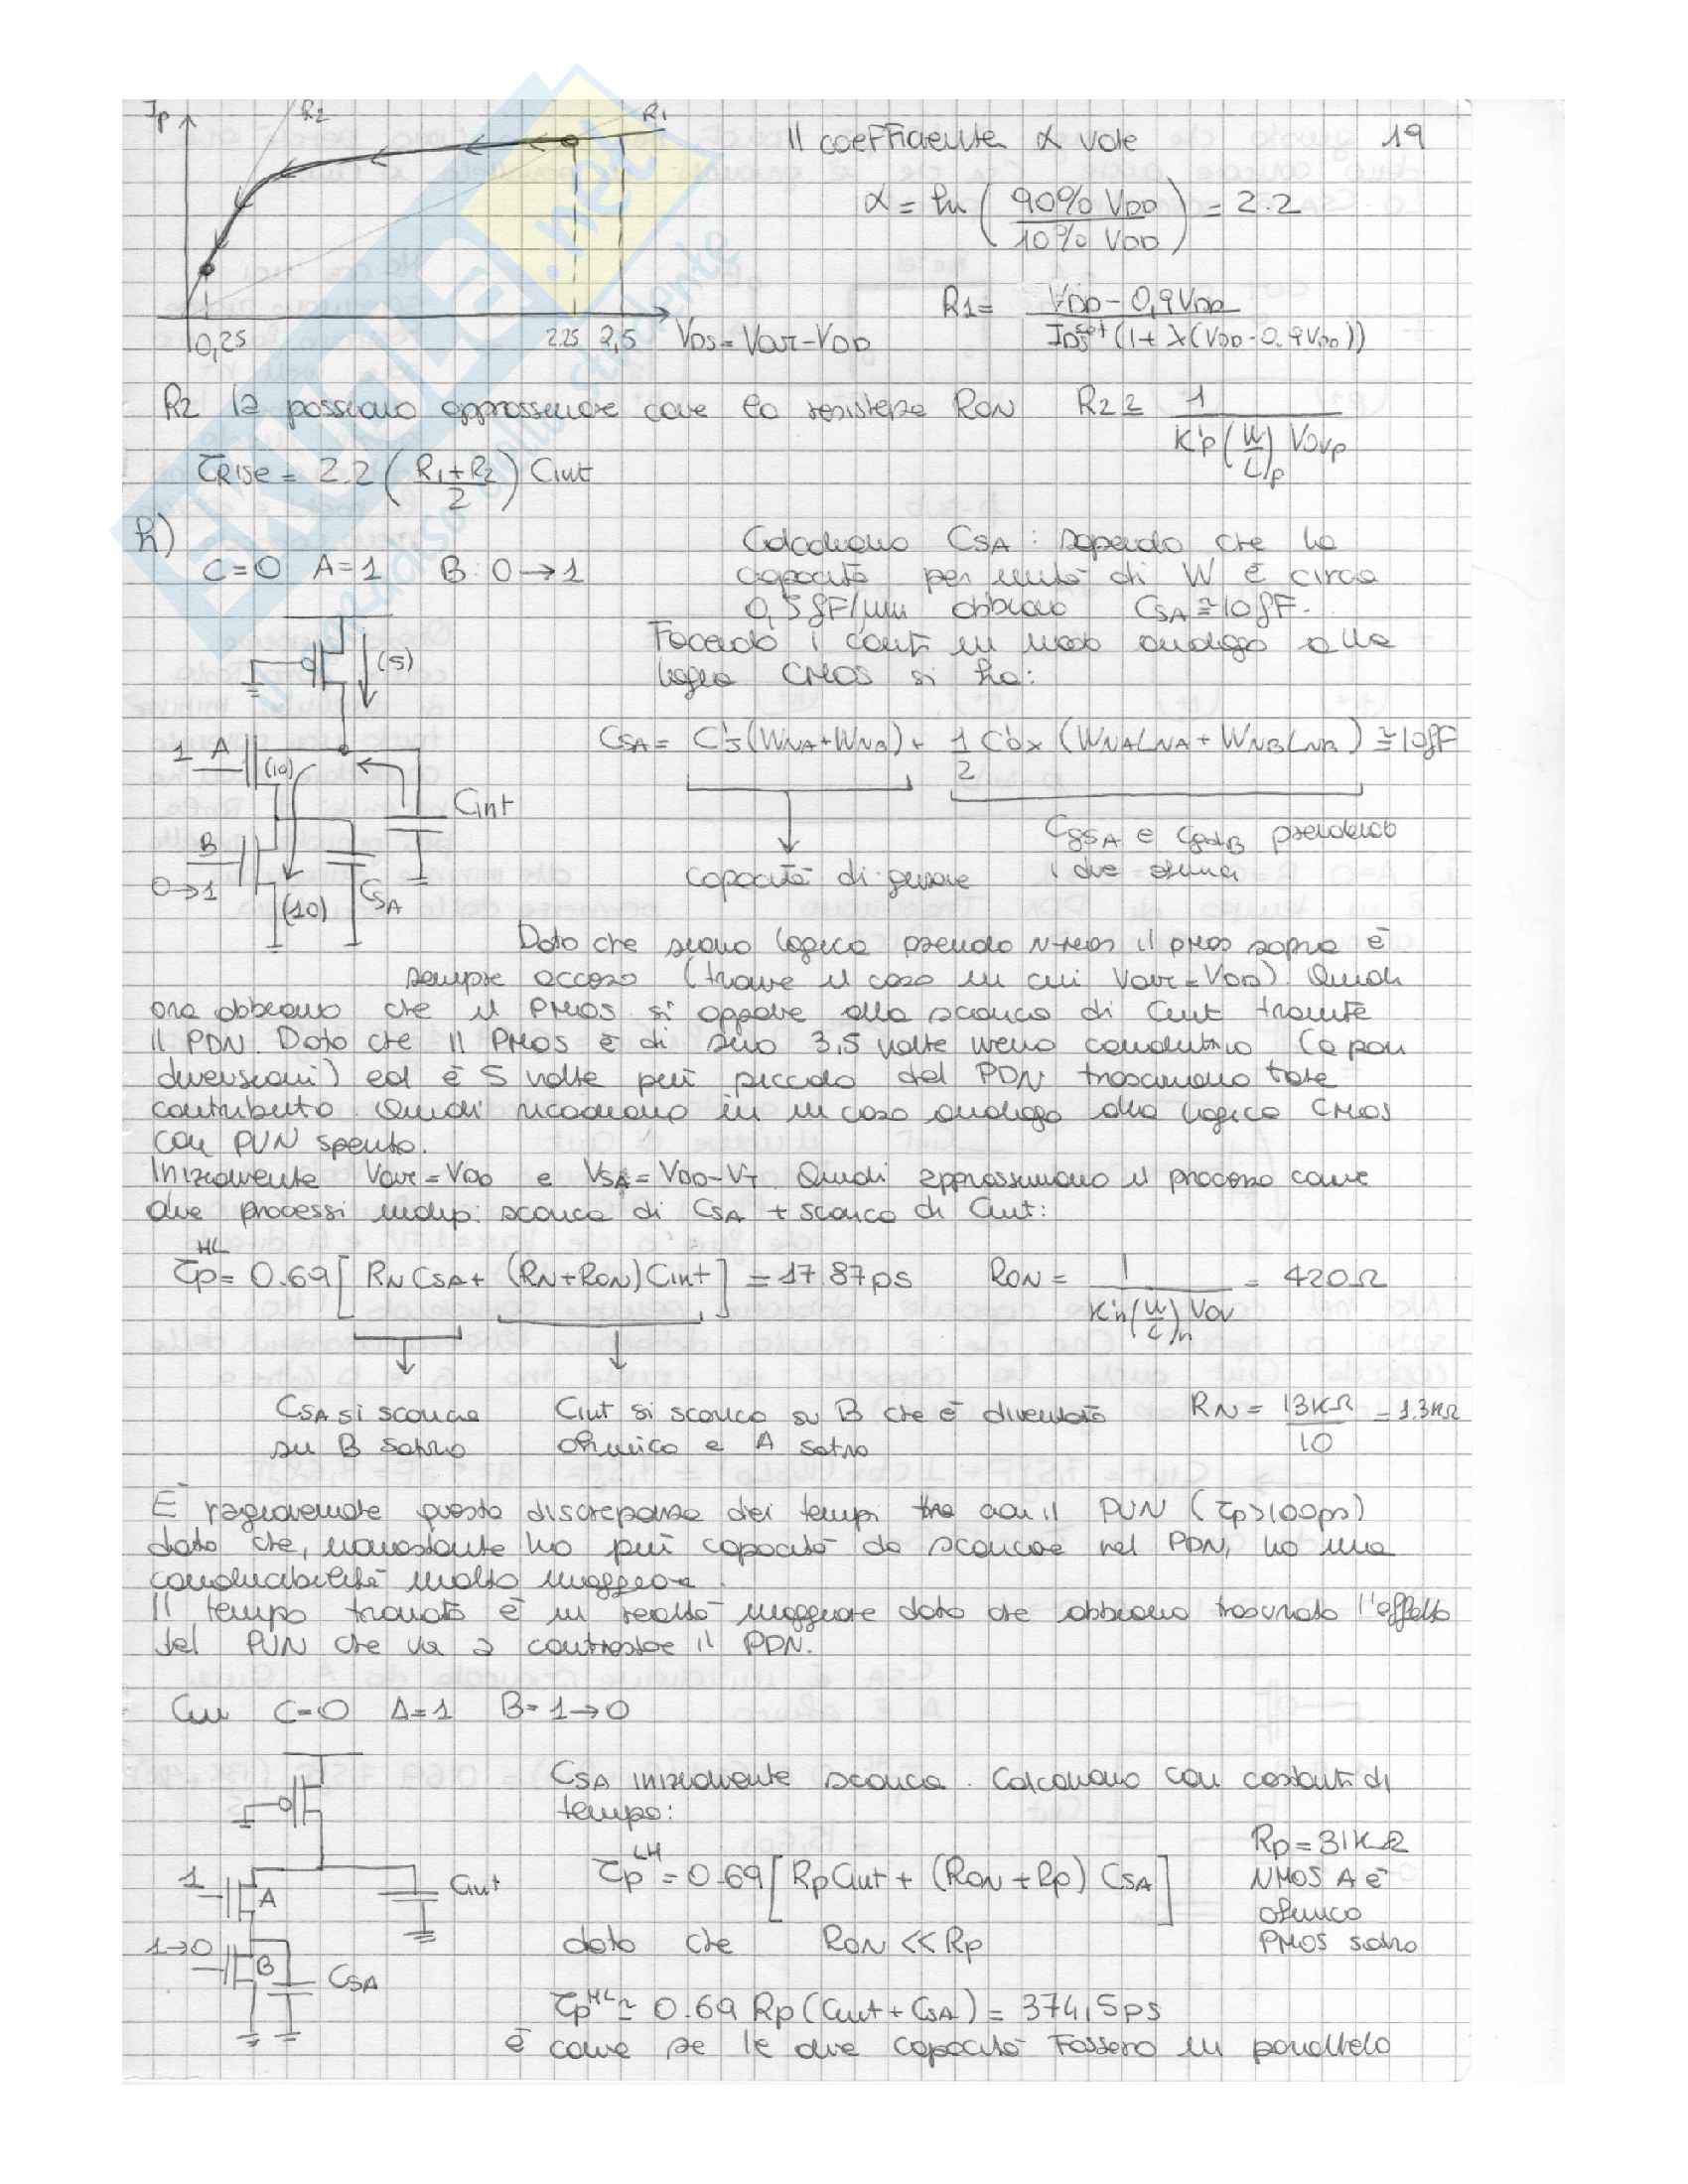 Ip R2 R1
Il coefficiente α vale 19
α = ln ( 90% VDD / 10% VDD ) = 2.2
R1 = VDD - 0,9VDD / IDS sat (1+λ(VDD-0.9VDD))
0,25 2.25 2,5 VDS=VOUT-VDD
R2 la possiamo approssimare come la resistenza RON R2 ≅ 1 / K'p (W/L)p VOVp
τRise = 2.2 ( R1+R2 / 2 ) Cint
h)
C=0 A=1 B: 0→1
Calcoliamo CSA: sapendo che la
capacità per unità di W è circa
0,5fF/μm abbiamo CSA≅10fF.
Facendo i conti in modo analogo alla
logica CMOS si ha:
(5)
CSA = C'J(WNA+WNB) + 1/2 C'ox (WNALNA + WNBLNB) ≅ 10fF
1 A (10) Cint
B 0→1 (10) CSA
capacità di giunzione
CgSA e CgdB prendendo
i due
Dato che siamo logica pseudo N-MOS il PMOS sopra è
sempre acceso (tranne il caso in cui VOUT=VDD). Quindi
ora abbiamo che il PMOS si oppone alla scarica di Cint tramite
il PDN. Dato che il PMOS è di suo 3,5 volte meno conduttivo (a pari
dimensioni) ed è 5 volte più piccolo del PDN trascuriamo tale
contributo. Quindi ricadiamo in un caso analogo alla logica CMOS
con PUN spento.
Inizialmente VOUT=VDD e VSA=VDD-VT. Quindi approssimiamo il processo come
due processi indip: scarica di CSA + scarica di Cint:
τp HL = 0.69 [ RN CSA + (RN+RON) Cint ] = 17.87ps RON = 1 / K'n(W/L)n VOV = 420Ω
CSA si scarica
su B saturo
Cint si scarica su B che è diventato
ohmico e A saturo
RN = 13KΩ / 10 = 1.3KΩ
È ragionevole questa discrepanza dei tempi tra con il PUN (τp>100ps)
dato che, nonostante ho più capacità da scaricare nel PDN, ho una
conducibilità molto maggiore.
Il tempo trovato è in realtà maggiore dato che abbiamo trascurato l'effetto
del PUN che va a contrastare il PDN.
Con C=0 A=1 B=1→0
CSA inizialmente scarica. Calcoliamo con costanti di
tempo:
τp LH = 0.69 [ Rp Cint + (RON + Rp) CSA ]
Rp = 31KΩ
NMOS A è
ohmico
PMOS saturo
1 A Cint
1→0 B CSA
dato che RON << Rp
τp HL ≃ 0.69 Rp (Cint + CSA) = 374,5ps
è come se le due capacità fossero in parallelo